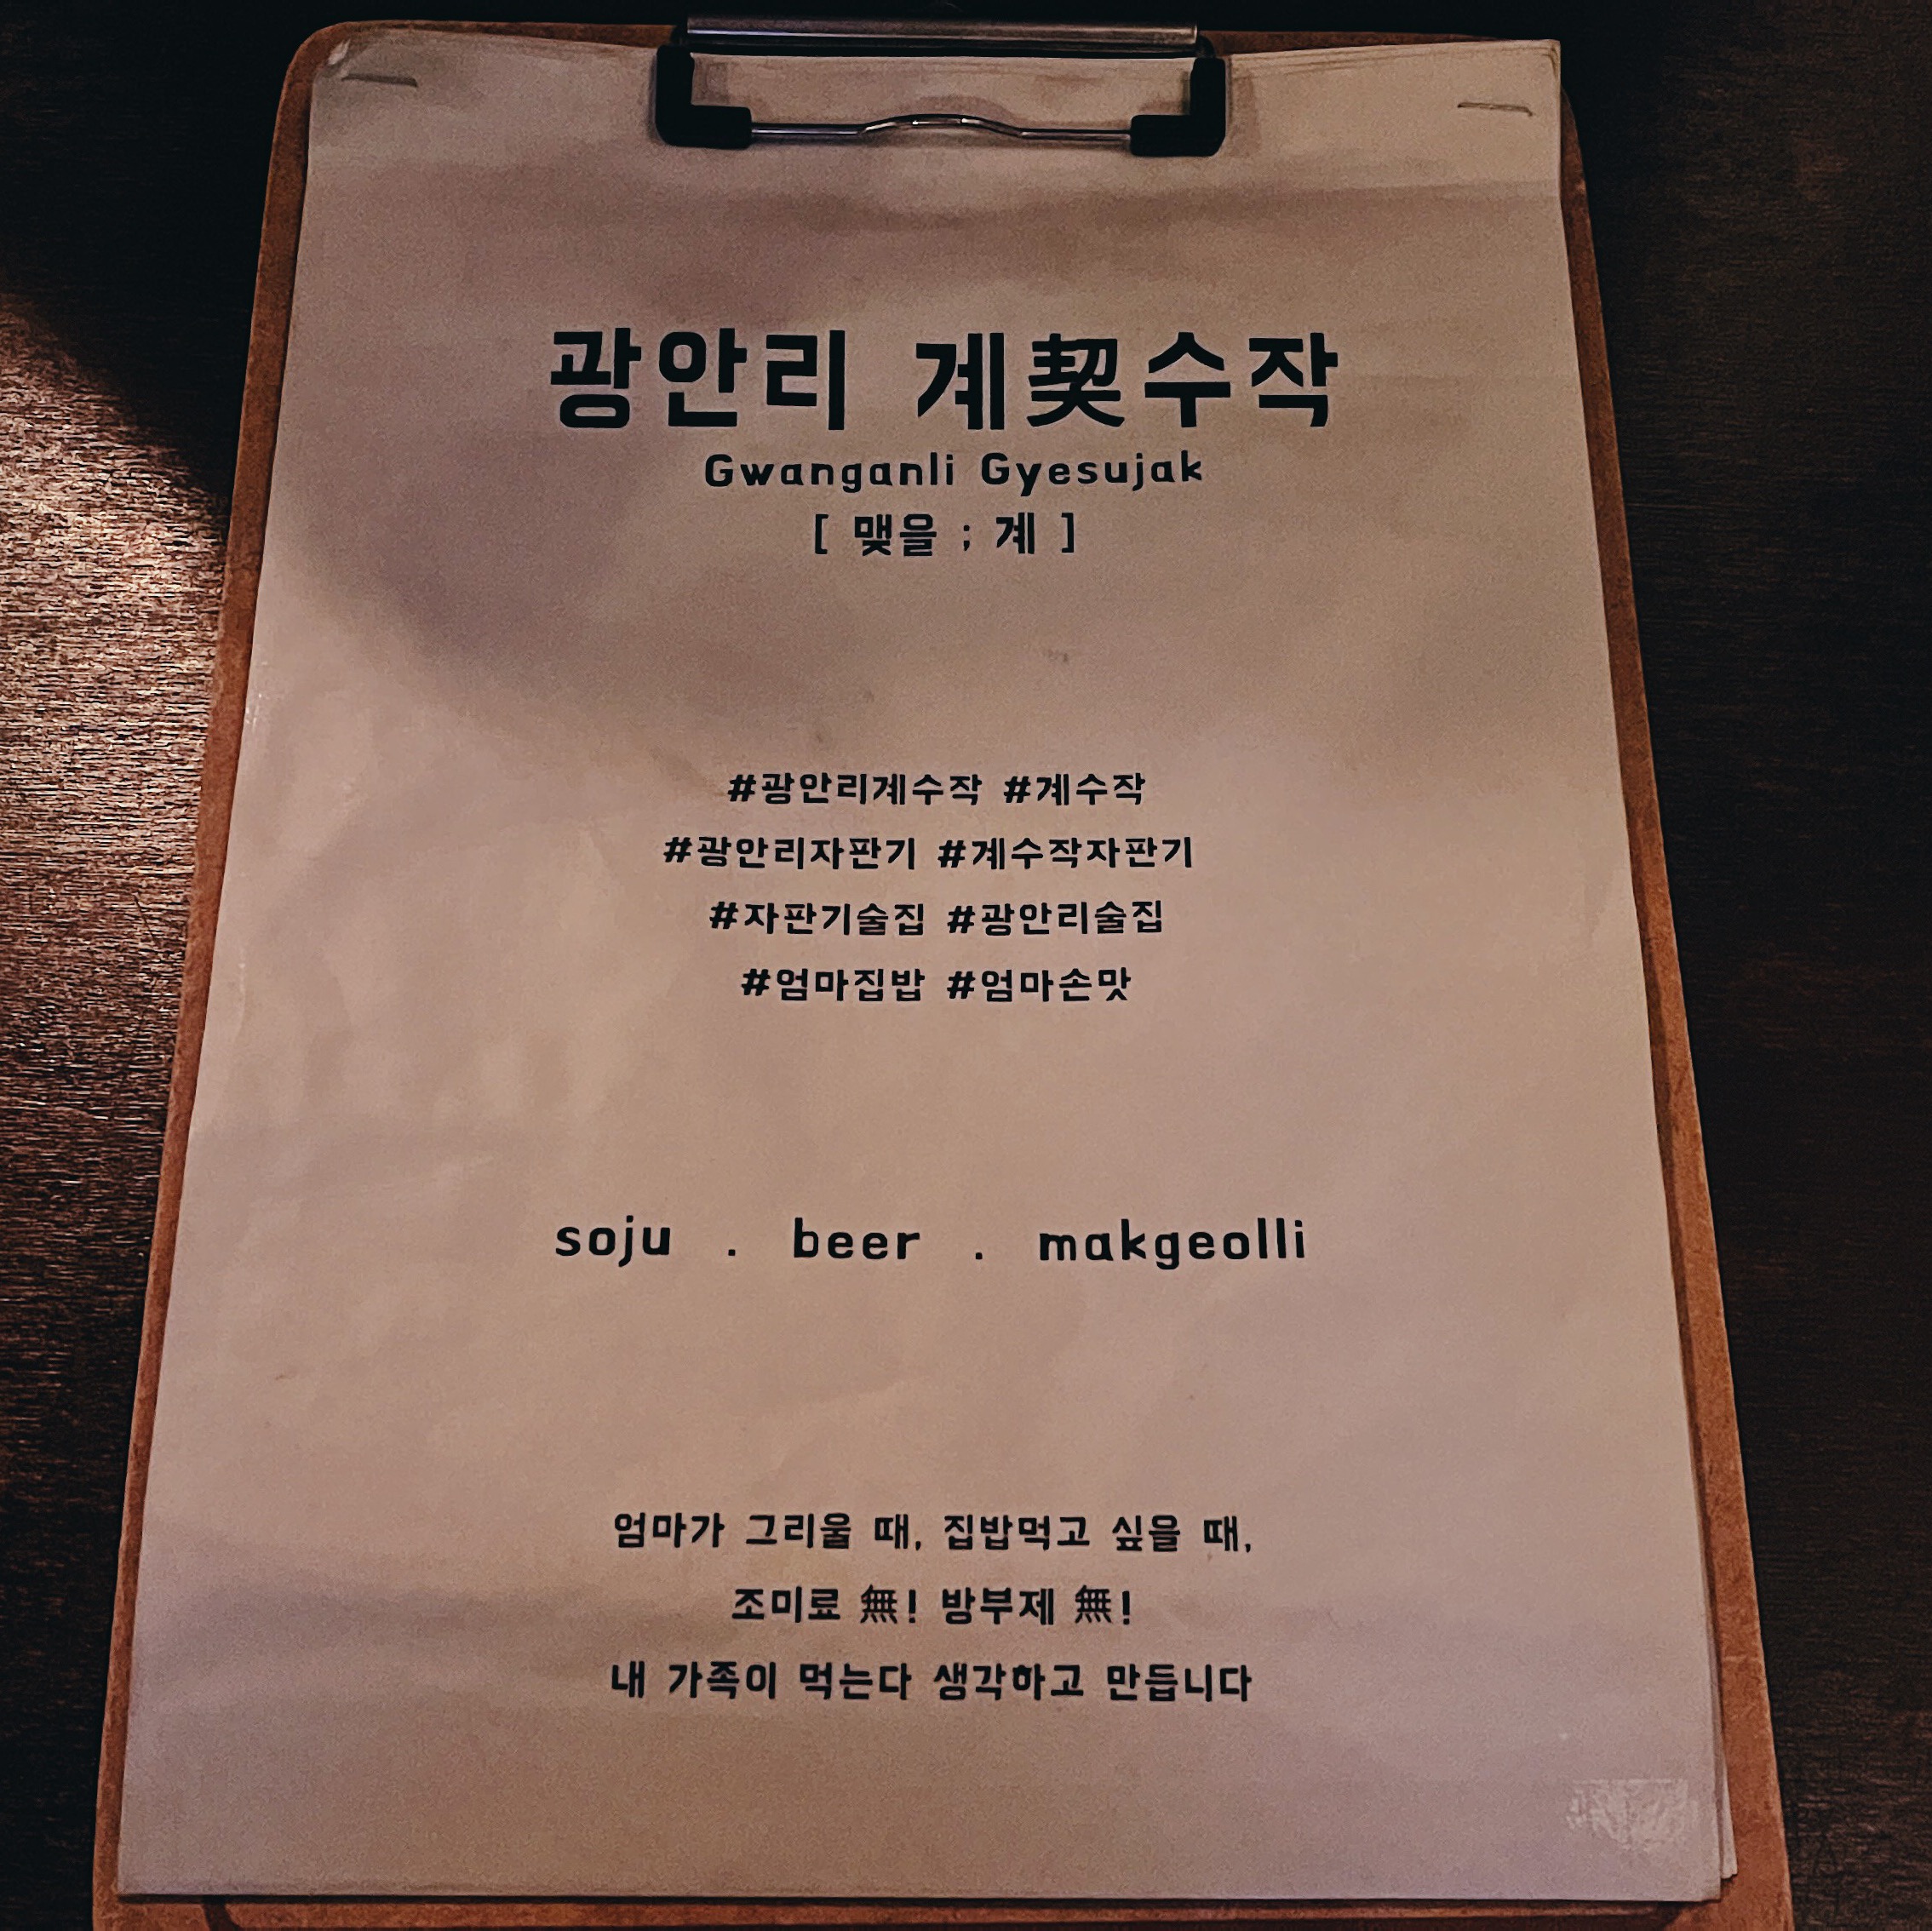 광안리 계契수작
Gwanganli Gyesujak
[ 맺을 ; 계 ]
#광안리계수작 #계수작
#광안리자판기 #계수작자판기
#자판기술집 #광안리술집
#엄마집밥 #엄마손맛
soju . beer . makgeolli
엄마가 그리울 때, 집밥먹고 싶을 때,
조미료 無! 방부제 無!
내 가족이 먹는다 생각하고 만듭니다